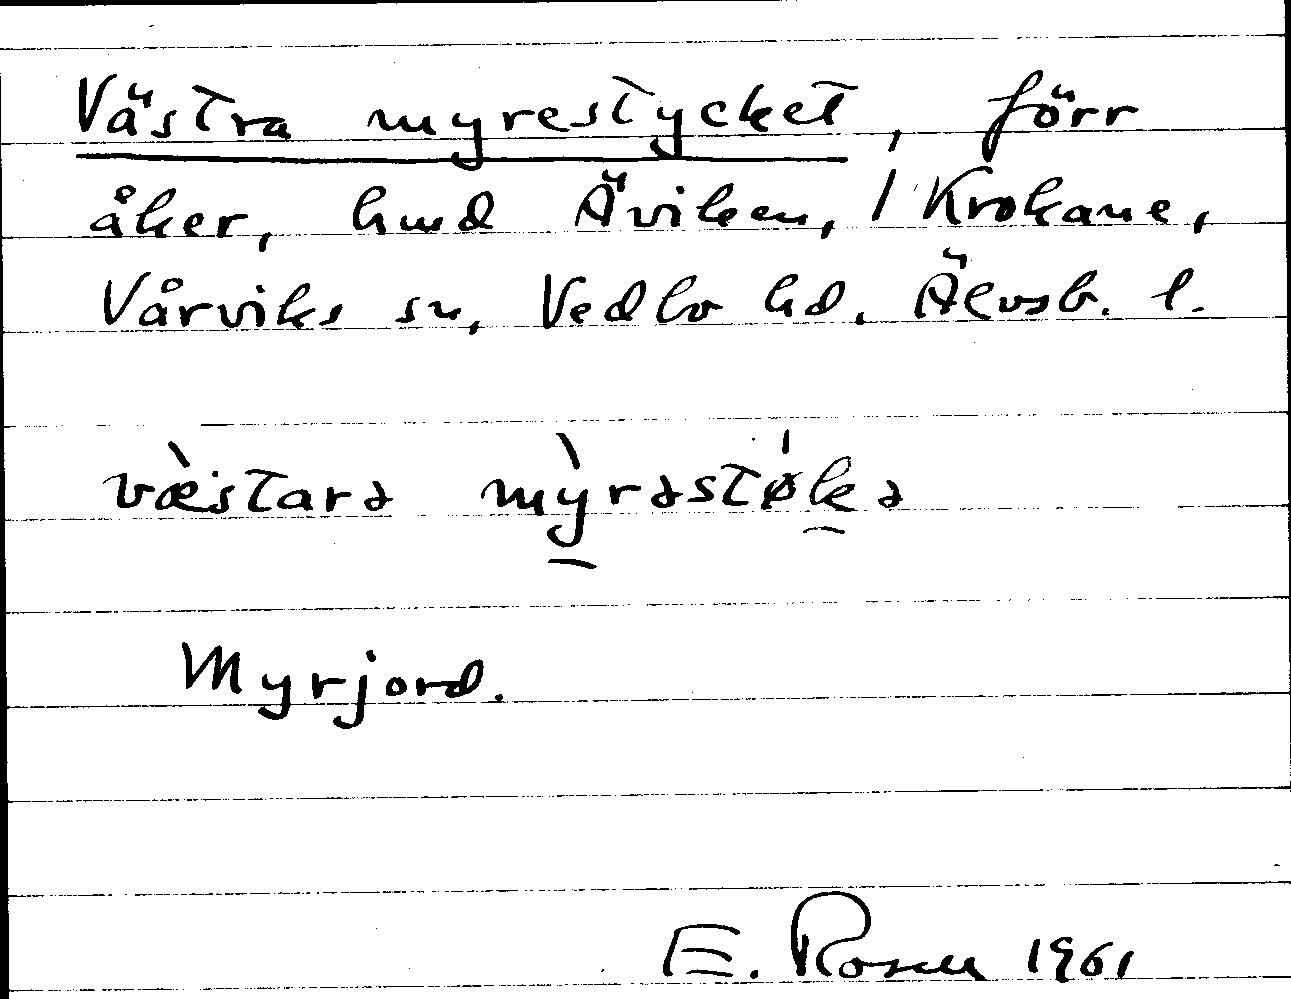 Västra myrestycket, förr
åker, hmd Äviken, / Krokane,
Vårviks sn, Vedbo hd. Älvsb. l.
væ̀starə mỳrəstø̍kə
Myrjord.
E. Rosen 1961